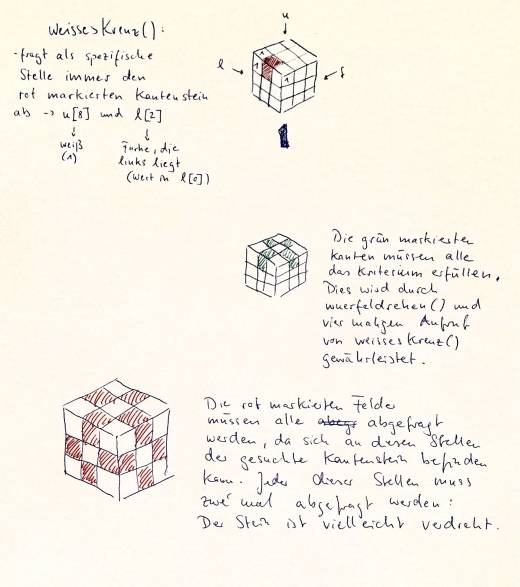 weissesKreuz():
- fragt als spezifische
Stelle immer den
rot markierten Kantenstein
ab -> u[8] und l[2]
↓ ↓
weiß Farbe, die
(1) links liegt
(Wert in l[0])
u
l
f
1 1
1
1
Die grün markierten
Kanten müssen alle
das Kriterium erfüllen.
Dies wird durch
wuerfeldrehen() und
vier maligen Aufruf
von weissesKreuz()
gewährleistet.
Die rot markierten Felder
müssen alle abgefragt
werden, da sich an diesen Stellen
der gesuchte Kantenstein befinden
kann. Jede dieser Stellen muss
zwei mal abgefragt werden:
Der Stein ist vielleicht verdreht.